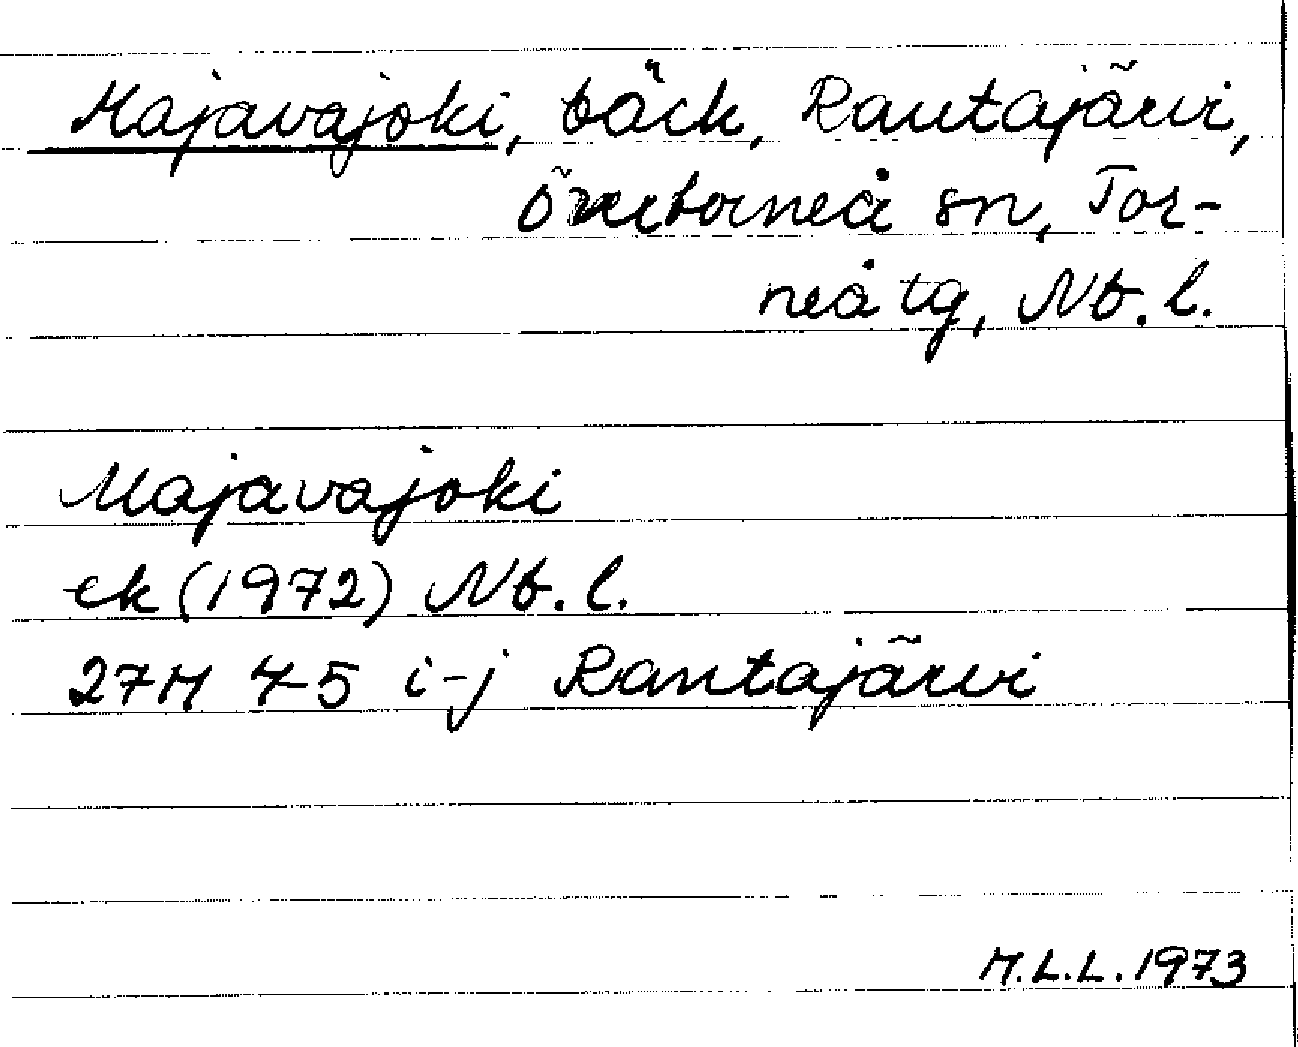 Majavajoki, bäck, Rantajärvi,
Övertorneå sn, Tor-
neå tg, Nb. l.
Majavajoki
ek (1972) Nb. l.
27M 4-5 i-j Rantajärvi
M.L.L. 1973